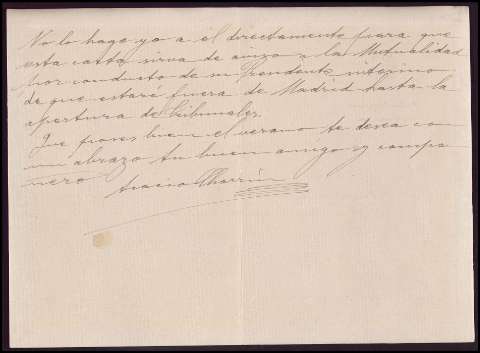 No lo hago yo a él directamente para que
esta carta sirva de aviso a la Mutualidad
por conducto de su presidente interino
de que estaré fuera de Madrid hasta la
apertura de tribunales.
Que pases buen el verano te desea con
un abrazo tu buen amigo y compa
ñero